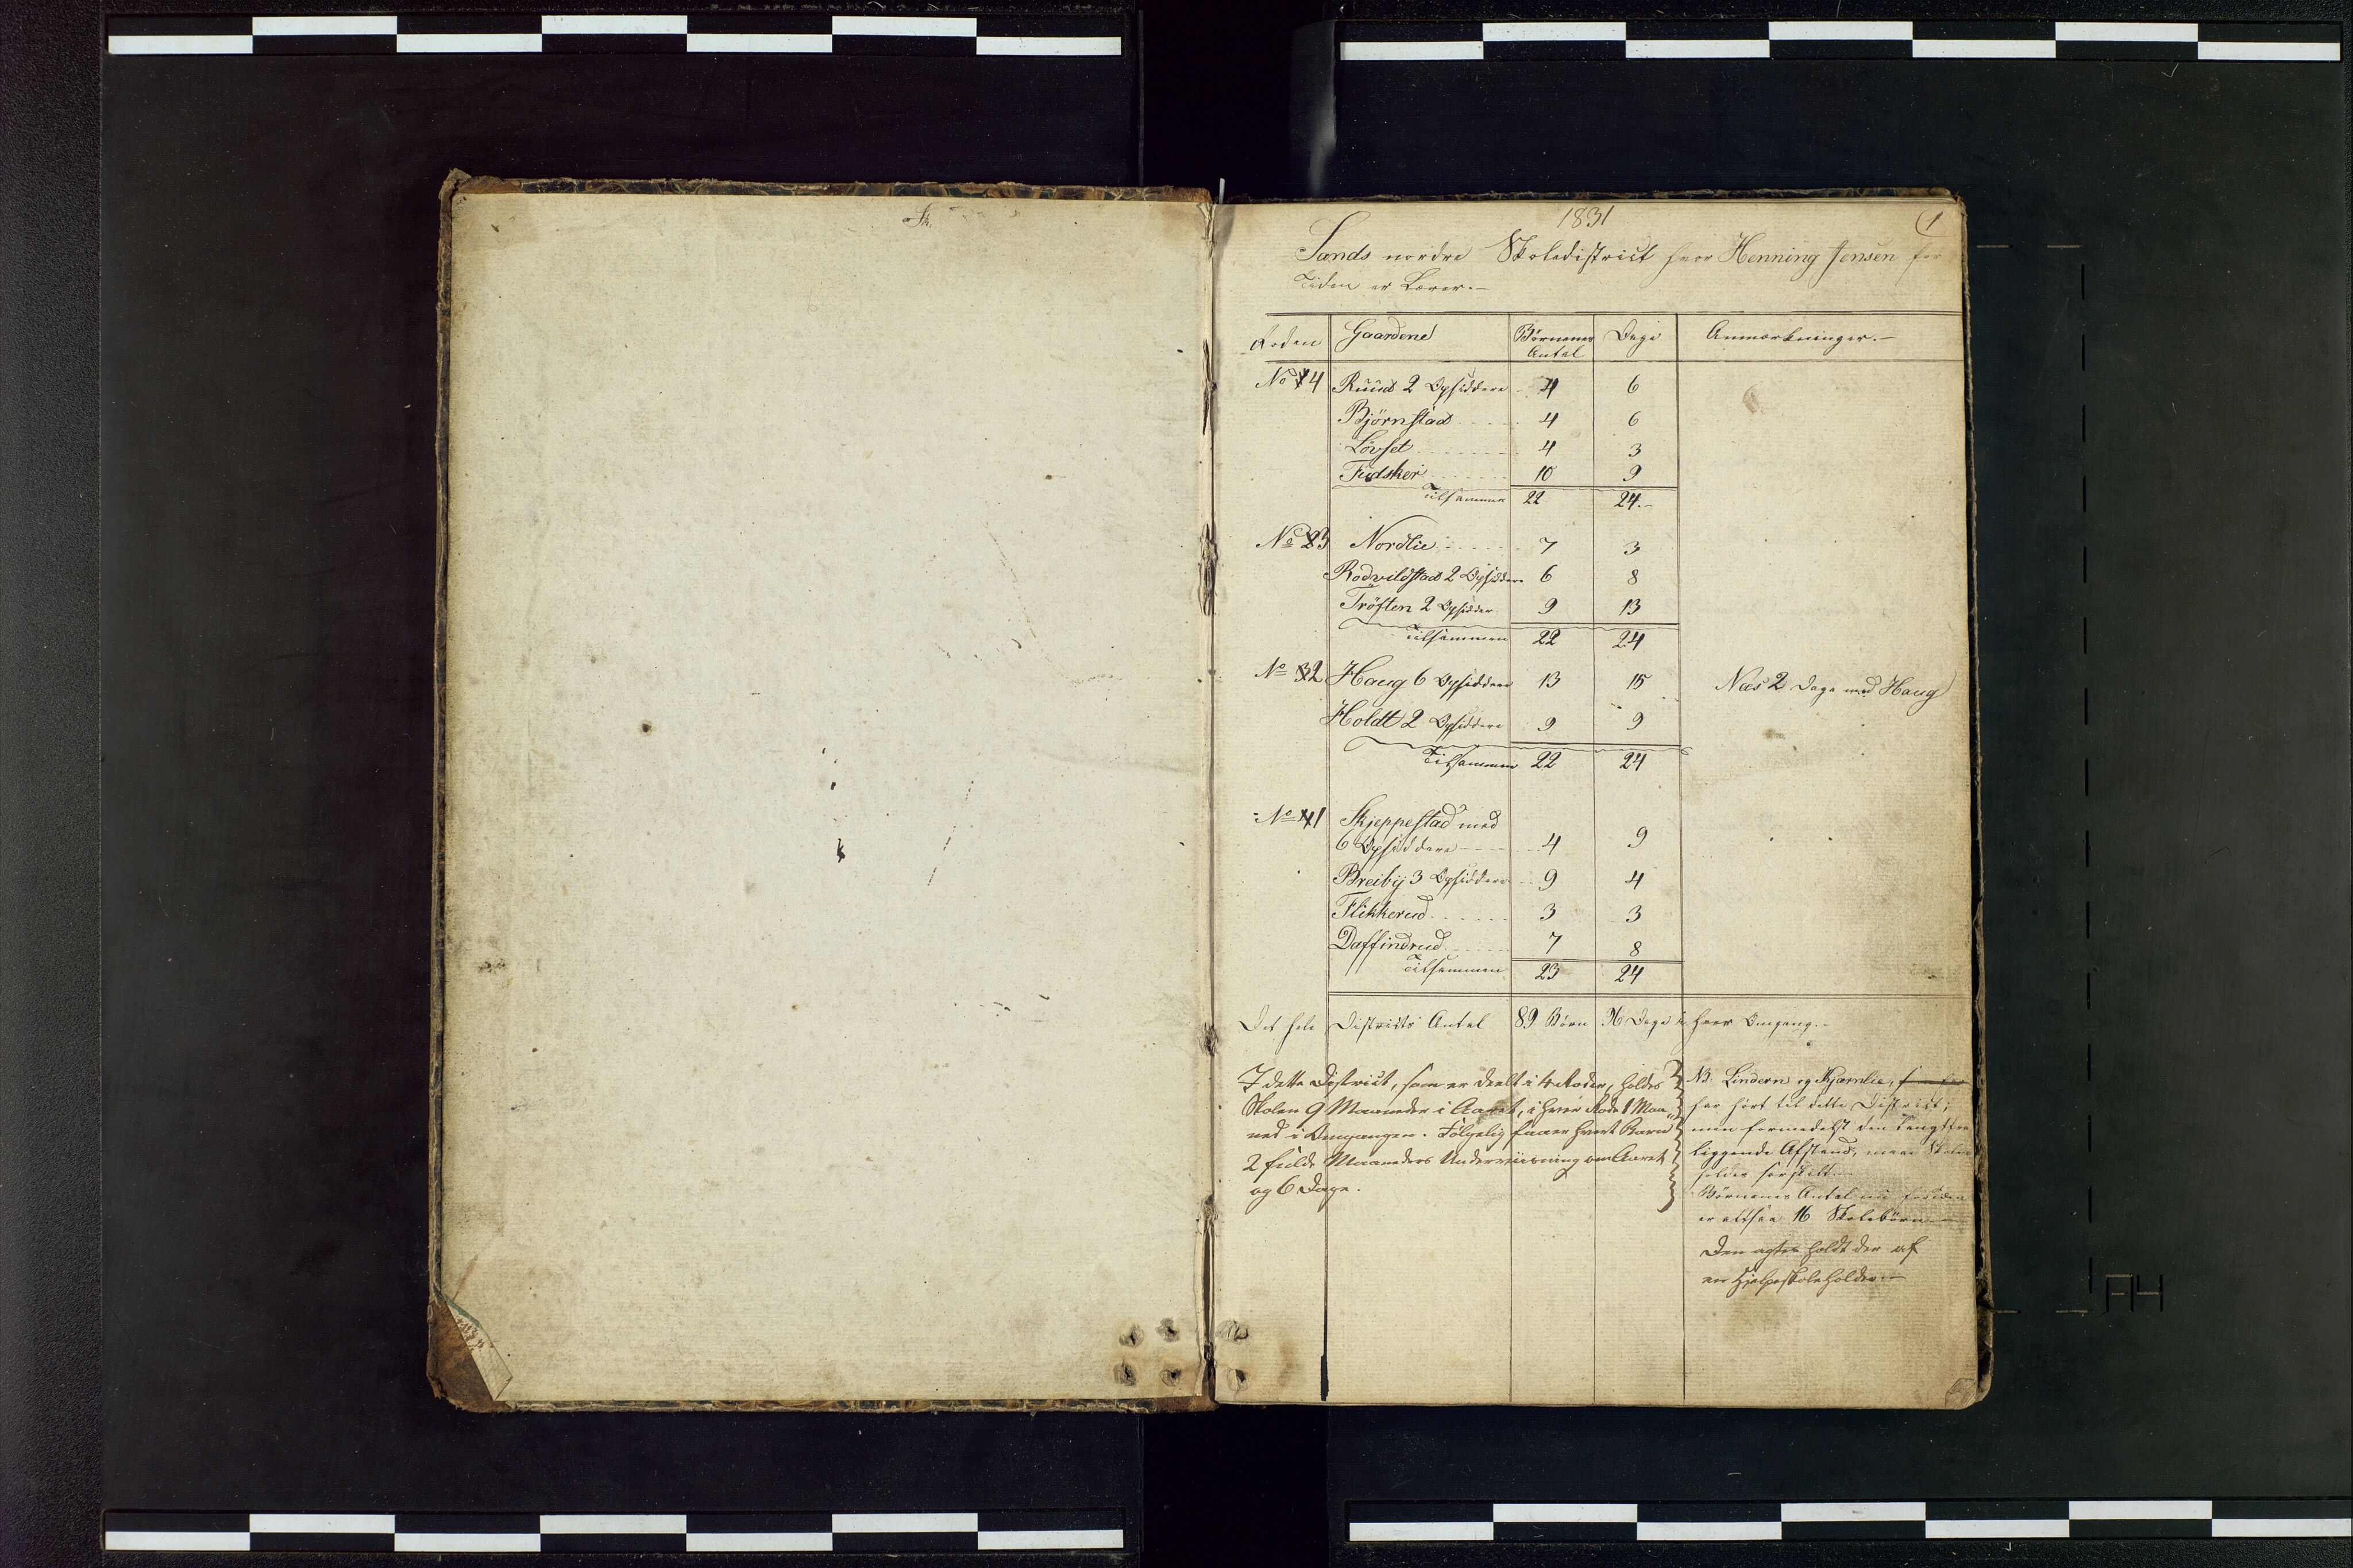 1831
1
Sands nordre Skoledistrict hvor Henning Jensen for
Tiden er Lærer.-
Roden Gaardene Börnenes Antal Dage Anmærkninger.-
No 4 Ruud 2 Opsiddere 4 6
Björnstad 4 6
Lövset 4 3
Fudsker 10 9
Tilsammen 22 24.-
No 3 Nordlie 7 3
Rodvildstad 2 Opsiddere 6 8
Tröften 2 Opsidder 9 13
Tilsammen 22 24
No 2 Haug 6 Opsiddere 13 15 Næs 2 Dage med Haug
Holdt 2 Opsiddere 9 9
Tilsammen 22 24
No 1 Skjeppestad med
6 Opsiddere 4 9
Breiby 3 Opsiddere 9 4
Flikkerud 3 3
Daffindrud 7 8
Tilsammen 23 24
Det hele Districts Antal 89 Börn 96 Dage i hver Omgang.-
I dette District, som er deelt i 4 Roder, holdes
Skolen 9 Maaneder i Aaret, i hver Rode 1 Maa-
ned i Omgangen. Fölgelig faaer hvert Barn
2 fulde Maaneders Underviisning om Aaret
og 6 Dage.
NB. Lindern og Kjernlie,
har hört til dette District;
men formedelst den langt fra
liggende Afstand, Skole
holdes særskilt.
Börnenes Antal
er altsaa 16 Skolebörn
Den agtes holdt der af
en Hjelpeskoleholder.-